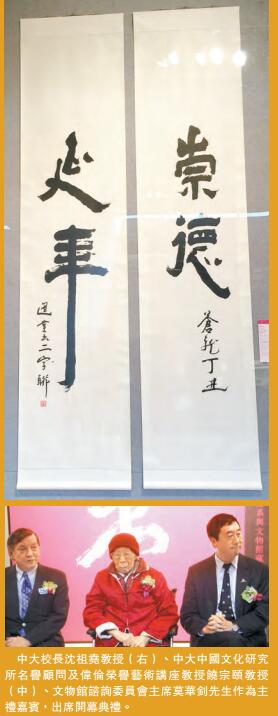 崇德
蒼龍丁丑
延年
選堂 二字聯
系與文物館
中大校長沈祖堯教授（右）、中大中國文化研究
所名譽顧問及偉倫榮譽藝術講座教授饒宗頤教授
（中）、文物館諮詢委員會主席莫華釗先生作為主
禮嘉賓，出席開幕典禮。